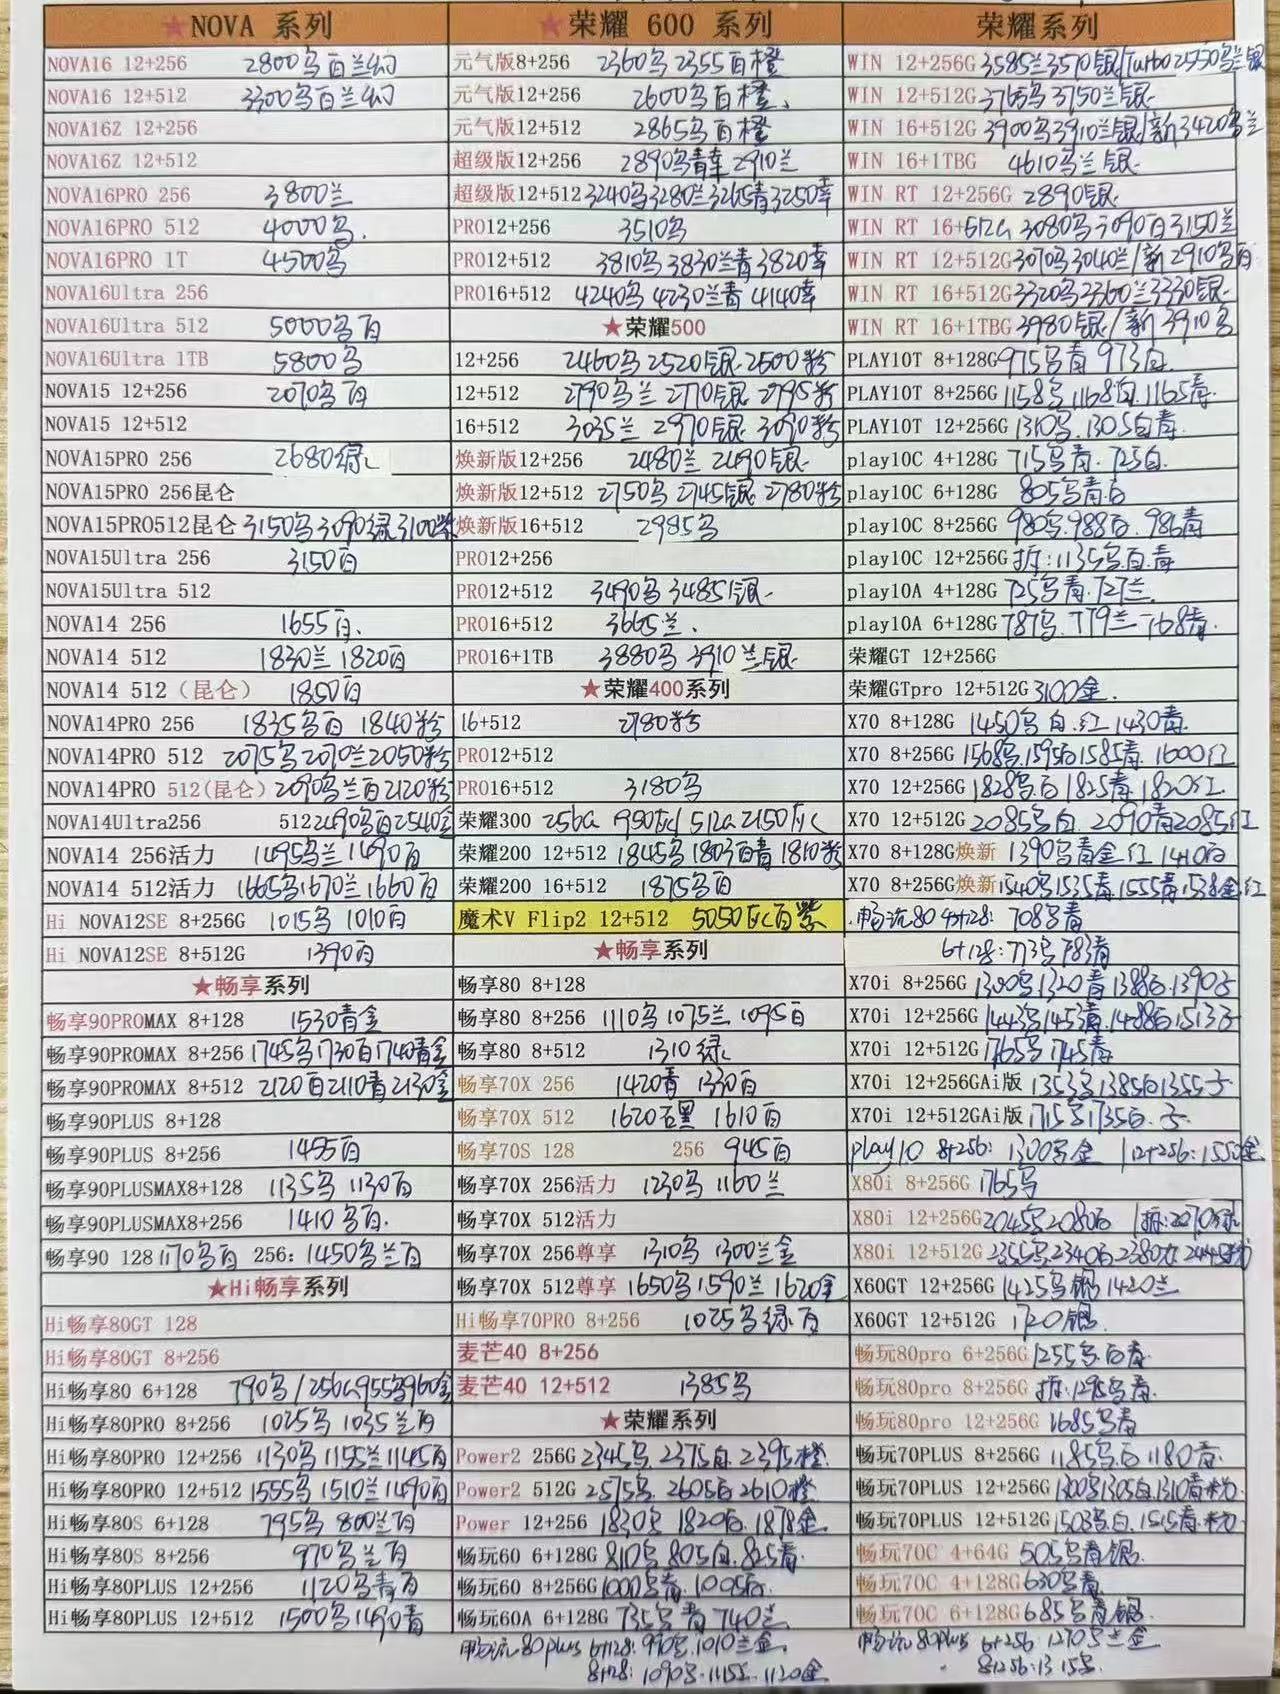 ★NOVA 系列
NOVA16 12+256 2800乌白兰幻
NOVA16 12+512 3300乌白兰幻
NOVA16Z 12+256
NOVA16Z 12+512
NOVA16PRO 256 3800兰
NOVA16PRO 512 4000乌.
NOVA16PRO 1T 4500乌
NOVA16Ultra 256
NOVA16Ultra 512 5000乌白
NOVA16Ultra 1TB 5800乌
NOVA15 12+256 2070乌白
NOVA15 12+512
NOVA15PRO 256 2680绿
NOVA15PRO 256昆仑
NOVA15PRO512昆仑 3150乌3090绿3100紫
NOVA15Ultra 256 3150白
NOVA15Ultra 512
NOVA14 256 1655白.
NOVA14 512 1830兰 1820白
NOVA14 512（昆仑） 1850白
NOVA14PRO 256 1835乌白 1840粉
NOVA14PRO 512 2075乌2070兰2050粉
NOVA14PRO 512(昆仑) 2090乌兰白2120粉
NOVA14Ultra256 512 2490乌白2540金
NOVA14 256活力 1495乌兰1490白
NOVA14 512活力 1665乌1670兰1660白
Hi NOVA12SE 8+256G 1015乌 1010白
Hi NOVA12SE 8+512G 1390白
★畅享系列
畅享90PROMAX 8+128 1530青金
畅享90PROMAX 8+256 1745乌1730白1740青金
畅享90PROMAX 8+512 2120白2110青2130金
畅享90PLUS 8+128
畅享90PLUS 8+256 1495白
畅享90PLUSMAX8+128 1135乌 1130白
畅享90PLUSMAX8+256 1410乌白.
畅享90 128 1170乌白 256: 1450乌兰白
★Hi畅享系列
Hi畅享80GT 128
Hi畅享80GT 8+256
Hi畅享80 6+128 790乌/256G955乌960金
Hi畅享80PRO 8+256 1025乌 1035兰白
Hi畅享80PRO 12+256 1130乌1155兰1145白
Hi畅享80PRO 12+512 1555乌 1510兰1490白
Hi畅享80S 6+128 795乌 800兰白
Hi畅享80S 8+256 970乌兰白
Hi畅享80PLUS 12+256 1120乌青白
Hi畅享80PLUS 12+512 1500乌1490青
★荣耀 600 系列
元气版8+256 2360乌2355白橙
元气版12+256 2600乌白橙.
元气版12+512 2865乌白橙
超级版12+256 2890乌青幸2910兰
超级版12+512 3240乌3280兰3265青3250幸
PRO12+256 3510乌
PRO12+512 3810乌3830兰青3820幸
PRO16+512 4240乌4230兰青4140幸
★荣耀500
12+256 2460乌2520银2500粉
12+512 2790乌兰2770银2795粉
16+512 3035兰 2970银3090粉
焕新版12+256 2480兰2490银
焕新版12+512 2750乌2745银2780粉
焕新版16+512 2985乌
PRO12+256
PRO12+512 3490乌3485银
PRO16+512 3665兰.
PRO16+1TB 3880乌 3910兰银
★荣耀400系列
16+512 2780粉
PRO12+512
PRO16+512 3180乌
荣耀300 256G 950灰/512G2150灰
荣耀200 12+512 1845乌1803白青1810粉
荣耀200 16+512 1875乌白
魔术V Flip2 12+512 5050灰白紫
★畅享系列
畅享80 8+128
畅享80 8+256 1110乌1075兰1095白
畅享80 8+512 1310绿
畅享70X 256 1420青 1330白
畅享70X 512 1620石黑 1610白
畅享70S 128 256 945白
畅享70X 256活力 1230乌1160兰
畅享70X 512活力
畅享70X 256尊享 1310乌 1300兰金
畅享70X 512尊享 1650乌1590兰1620金
Hi畅享70PRO 8+256 1025乌绿白
麦芒40 8+256
麦芒40 12+512 1385乌
★荣耀系列
Power2 256G 2345乌 2375白 2395橙
Power2 512G 2575乌 2605白2610橙
Power 12+256 1830乌1820白.1878金
畅玩60 6+128G 810乌805白.825青.
畅玩60 8+256G 1000乌青.1005白.
畅玩60A 6+128G 735乌青740兰
畅玩80plus 6+128: 990乌.1010兰金.
8+128: 1090乌.1115兰.1120金
荣耀系列
WIN 12+256G 3585兰3570银/Turbo2550乌兰银
WIN 12+512G 3765乌3750兰银
WIN 16+512G 3900乌3910兰银/新3420乌兰
WIN 16+1TBG 4610乌兰银
WIN RT 12+256G 2890银
WIN RT 16+512G 3080乌3090白3150兰
WIN RT 12+512G 3070乌3040兰/新2910乌白
WIN RT 16+512G 3320乌3360兰3330银
WIN RT 16+1TBG 3980银/新3910乌
PLAY10T 8+128G 975乌青 973白.
PLAY10T 8+256G 1158乌1168白.1165青.
PLAY10T 12+256G 1310乌.1305白青.
play10C 4+128G 715乌青.725白.
play10C 6+128G 805乌青白
play10C 8+256G 980乌.988白.986青
play10C 12+256G 拆:1135乌.白.青
play10A 4+128G 725乌青.727兰.
play10A 6+128G 787乌.779兰.768青.
荣耀GT 12+256G
荣耀GTpro 12+512G 3100金.
X70 8+128G 1450乌.白.红.1430青.
X70 8+256G 1568乌.1595白1585青.1600红
X70 12+256G 1828乌.白1825青1820红
X70 12+512G 2085乌白.2090青2085红
X70 8+128G焕新 1390乌青金红1410白
X70 8+256G焕新 1540乌1535青.1555青1538金红
畅玩80 4+128: 708乌青
6+128: 773乌783青
X70i 8+256G 1300乌1320青1388白.1390子
X70i 12+256G 1443乌1453青.1488白1513子
X70i 12+512G 1765乌1745青
X70i 12+256GAi版 1353乌1385白1355子
X70i 12+512GAi版 1715乌1735白.子
play10 8+256: 1300乌金 |12+256: 1550金
X80i 8+256G 1765乌
X80i 12+256G 2045乌2080白 |拆:2070绿
X80i 12+512G 2355乌2340白2380 2445粉
X60GT 12+256G 1425乌银1420兰
X60GT 12+512G 1720银.
畅玩80pro 6+256G 1255乌.白青.
畅玩80pro 8+256G 拆:1295乌青.
畅玩80pro 12+256G 1685乌青
畅玩70PLUS 8+256G 1185乌白1180青.
畅玩70PLUS 12+256G 1300乌1305白1310青粉
畅玩70PLUS 12+512G 1503乌.白.1515青.粉
畅玩70C 4+64G 505乌青银.
畅玩70C 4+128G 630乌青.
畅玩70C 6+128G 685乌青银.
畅玩80plus 6+256: 1270乌兰金
8+256: 1315乌.